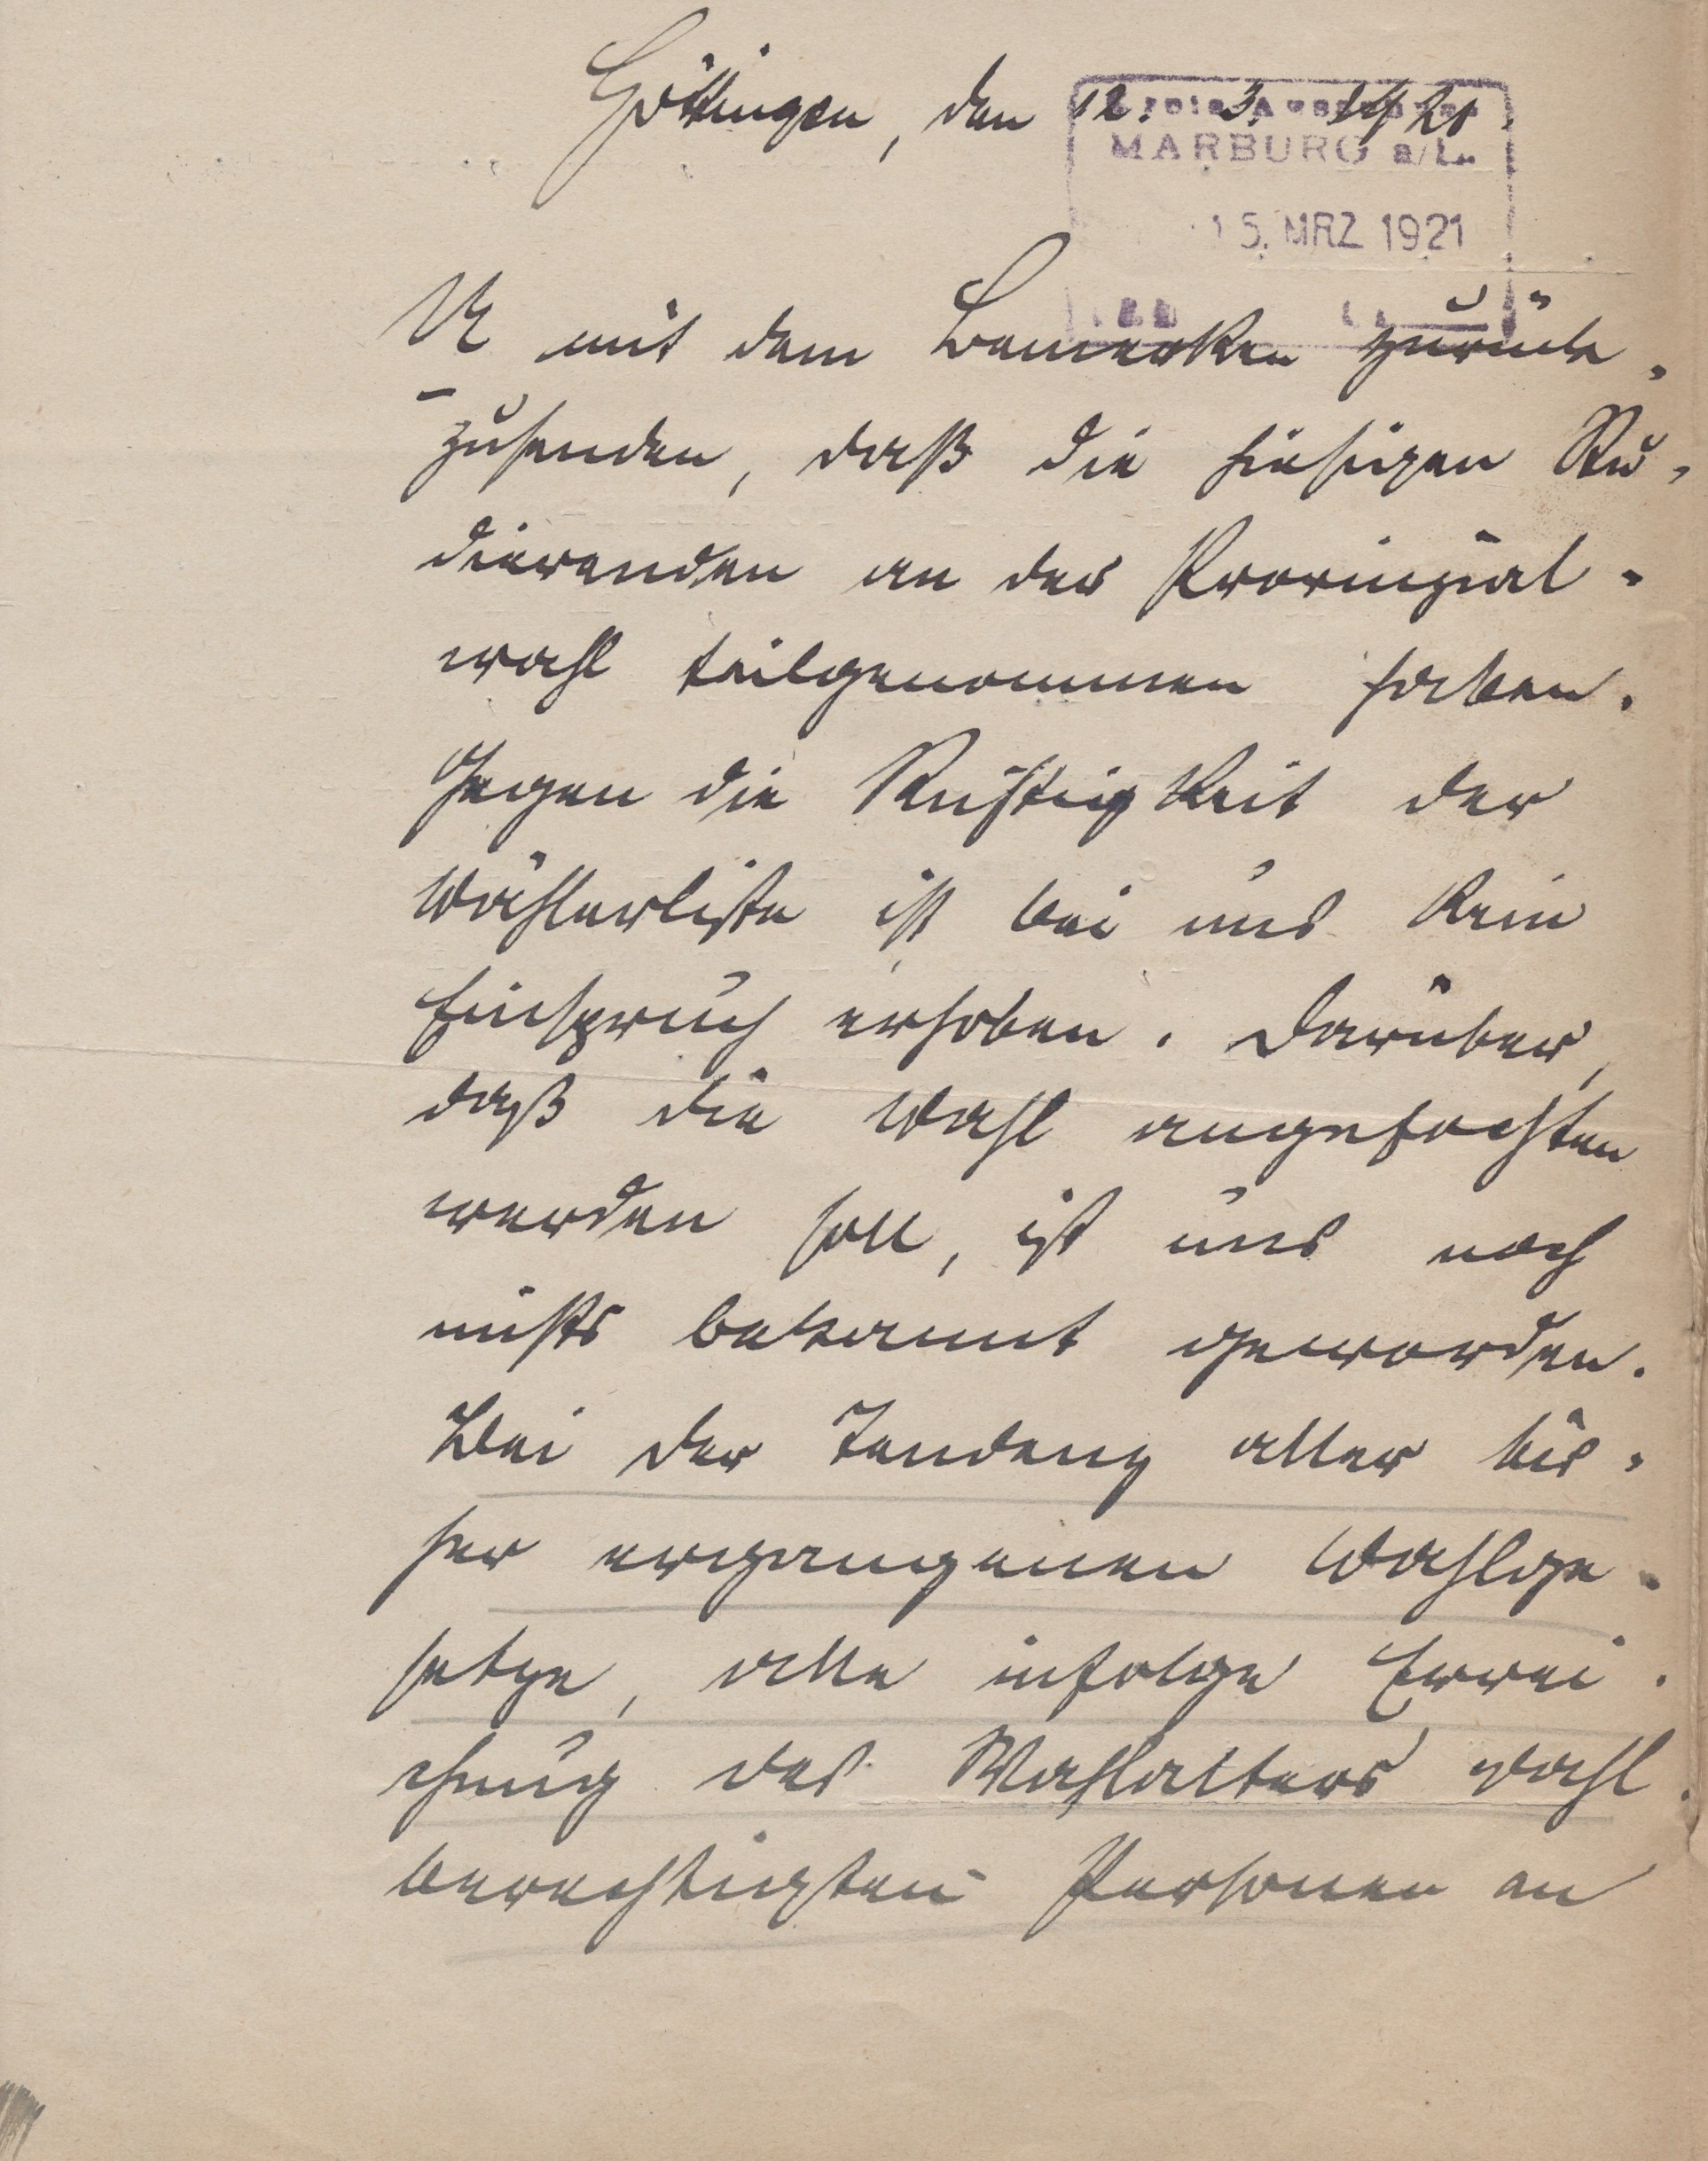 Göttingen, den 12. 3. 1921.
Kreis Ausschuss
MARBURG a/L.
15. MRZ 1921
U mit dem Bemerken zurück-
zusenden, daß die hiesigen Stu-
dierenden an der Provinzial-
wahl teilgenommen haben.
Gegen die Richtigkeit der
Wählerliste ist bei uns kein
Einspruch erhoben. Darüber,
daß die Wahl angefochten
werden soll, ist uns noch
nichts bekannt geworden.
Bei der Tendenz aller bis-
her ergangenen Wahlge-
setze, alle infolge Errei-
chung des Wahlalters wahl-
berechtigten Personen an